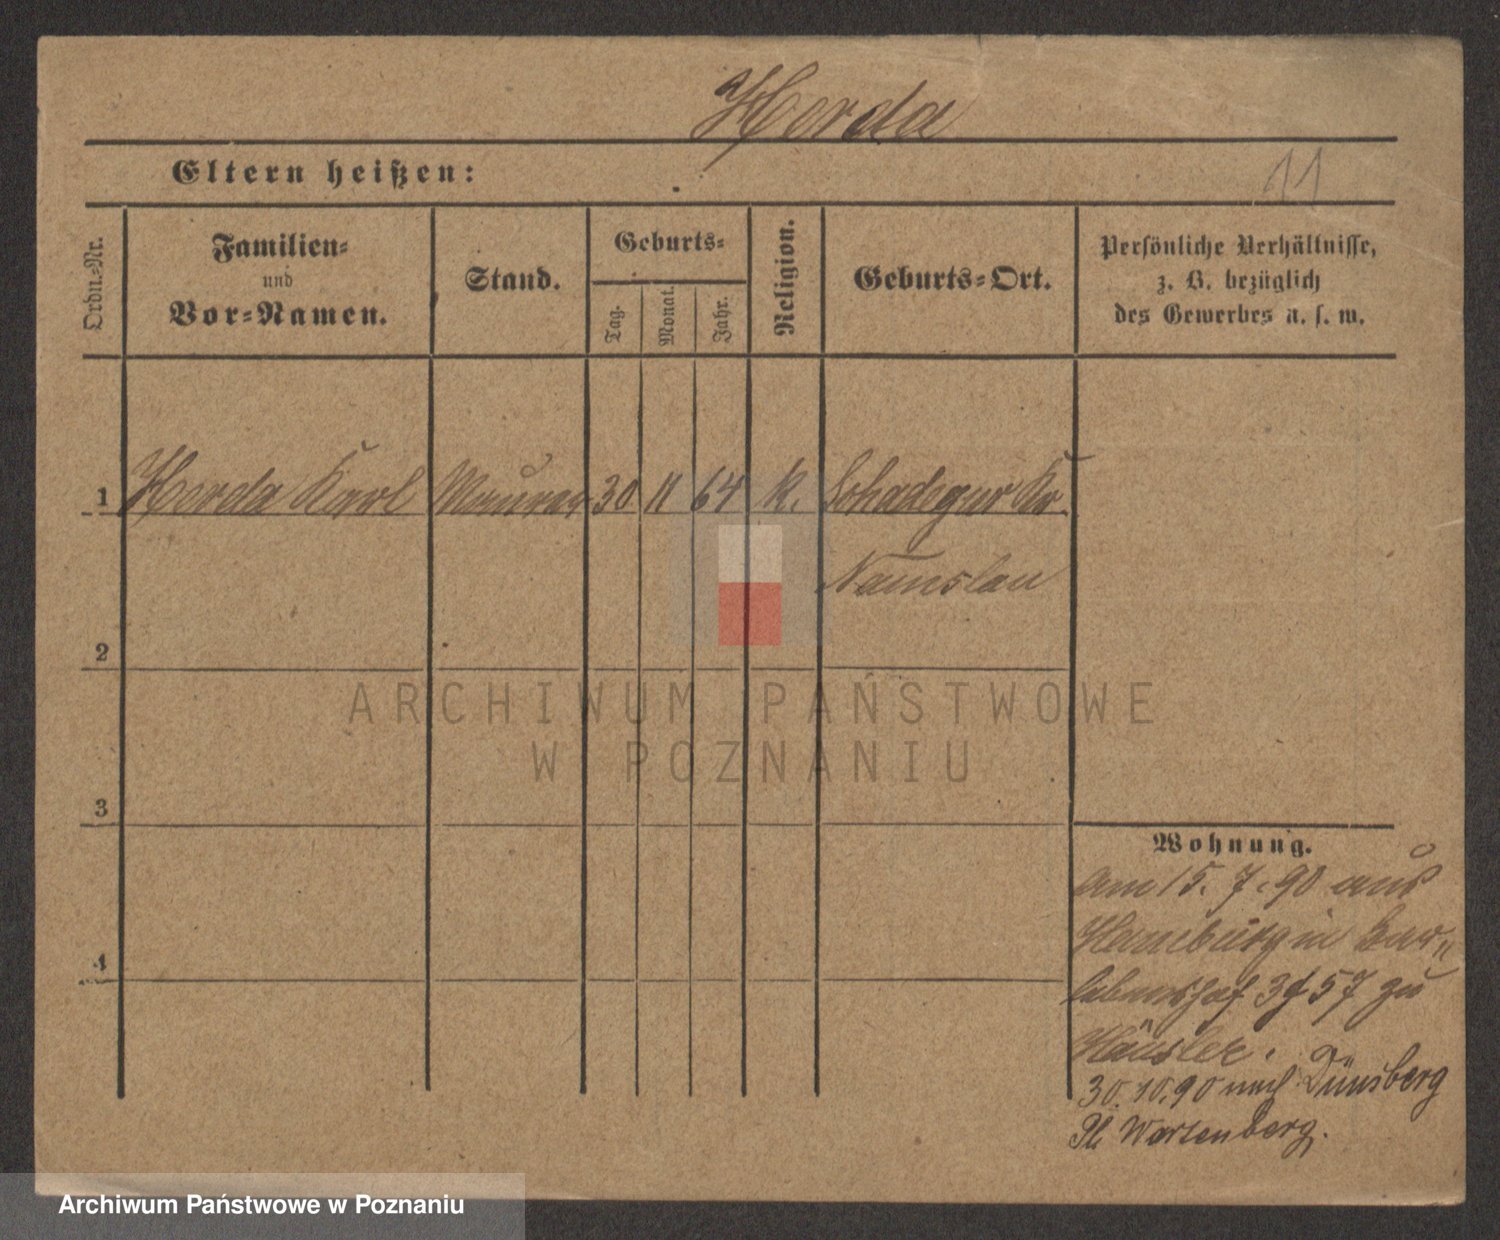 Herda
Eltern heißen:
11
Ordn.-Nr.
Familien-
und
Vor-Namen.
Stand.
Geburts-
Tag.
Monat.
Jahr.
Religion.
Geburts-Ort.
Persönliche Verhältnisse,
z. B. bezüglich
des Gewerbes u. s. w.
1 Herda Karl Maurer 30 11 64 k. Schadegur Kr.
Namslau
2
ARCHIWUM PAŃSTWOWE
W POZNANIU
3
Wohnung.
am 15. 7. 90 aus
Hamburg in
57 zu
4
Häusler.
30.10.90 nach
Pl. Wartenberg.
Archiwum Państwowe w Poznaniu